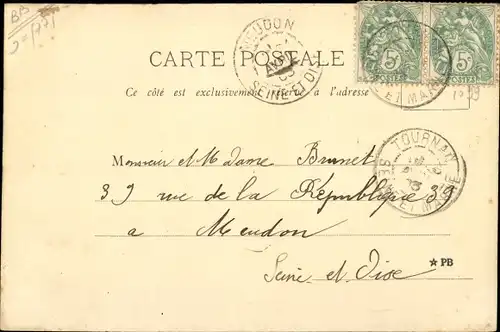 CARTE POSTALE
Ce côté est exclusivement réservé à l'adresse
MEUDON
SEINE ET OISE
5c 5c
POSTES POSTES
TOURNAN
SEINE ET MARNE
Monsieur et Madame Brunet
39 rue de la République 39
a Meudon
Seine et Oise
★ PB